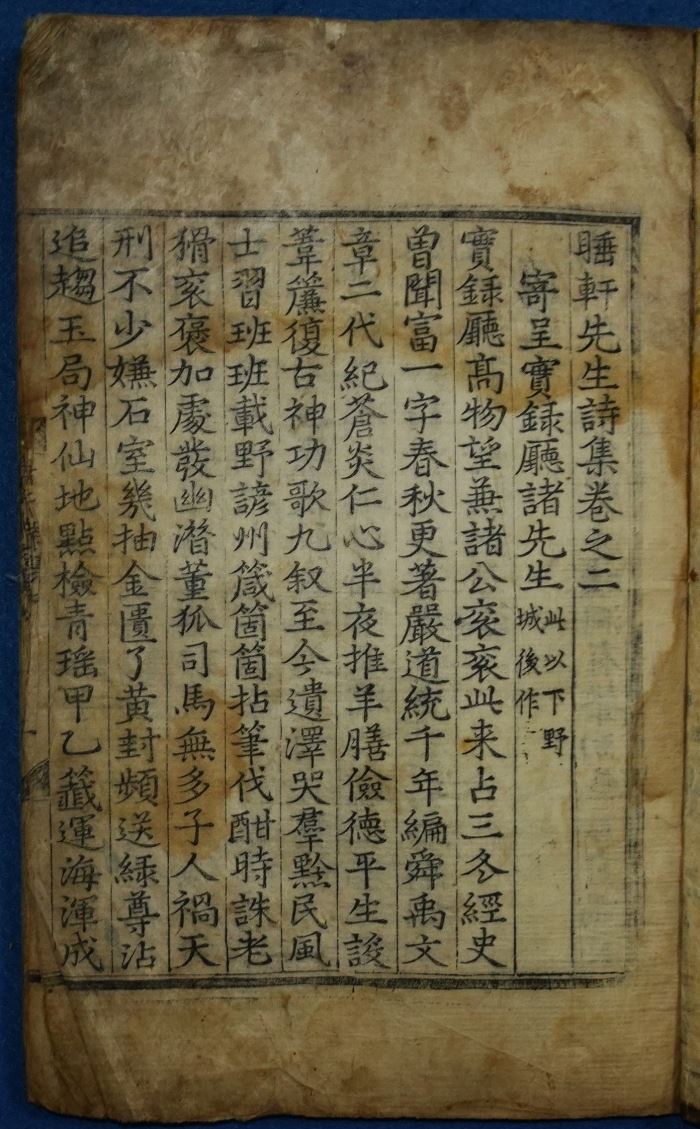 睡軒先生詩集卷之二
寄呈實録廳諸先生 此以下野城後作
實録廳髙物望兼諸公衮衮此来占三冬經史
曽聞富一字春秋更著嚴道統千年編舜禹文
章二代紀蒼炎仁心半夜推羊膳儉德平生設
葦簾復古神功歌九叙至今遺澤哭羣黔民風
士習班班載野諺州箴箇箇拈筆伐酣時誅老
猾衮褒加處發幽潛董狐司馬無多子人禍天
刑不少嫌石室幾抽金匱了黄封頻送緑尊沾
追趨玉局神仙地點檢青瑶甲乙籤運海渾成